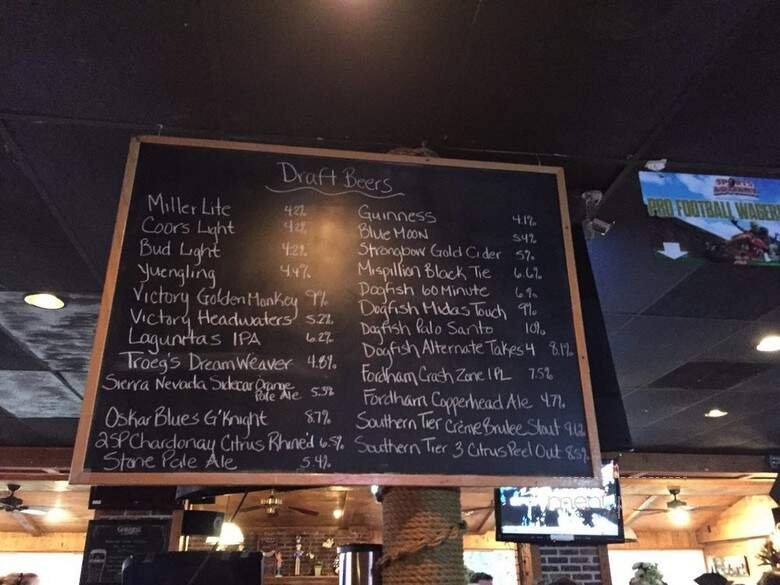 Draft Beers
Miller Lite 4.2%
Coors Light 4.2%
Bud Light 4.2%
Yuengling 4.4%
Victory Golden Monkey 9%
Victory Headwaters 5.2%
Lagunitas IPA 6.2%
Troeg's DreamWeaver 4.8%
Sierra Nevada Sidecar Orange
Pale Ale 5.3%
Oskar Blues G'Knight 8.7%
2SP Chardonay Citrus Rhine'd 6.5%
Stone Pale Ale 5.4%
Guinness 4.1%
Blue Moon 5.4%
Strongbow Gold Cider 5%
Mispillion Black Tie 6.6%
Dogfish 60 Minute 6%
Dogfish Midas Touch 9%
Dogfish Palo Santo 10%
Dogfish Alternate Takes 4 8.1%
Fordham Crash Zone IPL 7.5%
Fordham Copperhead Ale 4.7%
Southern Tier Crème Brulee Stout
Southern Tier 3 Citrus Peel Out 8.5%
PRO FOOTBALL WAGER
menu